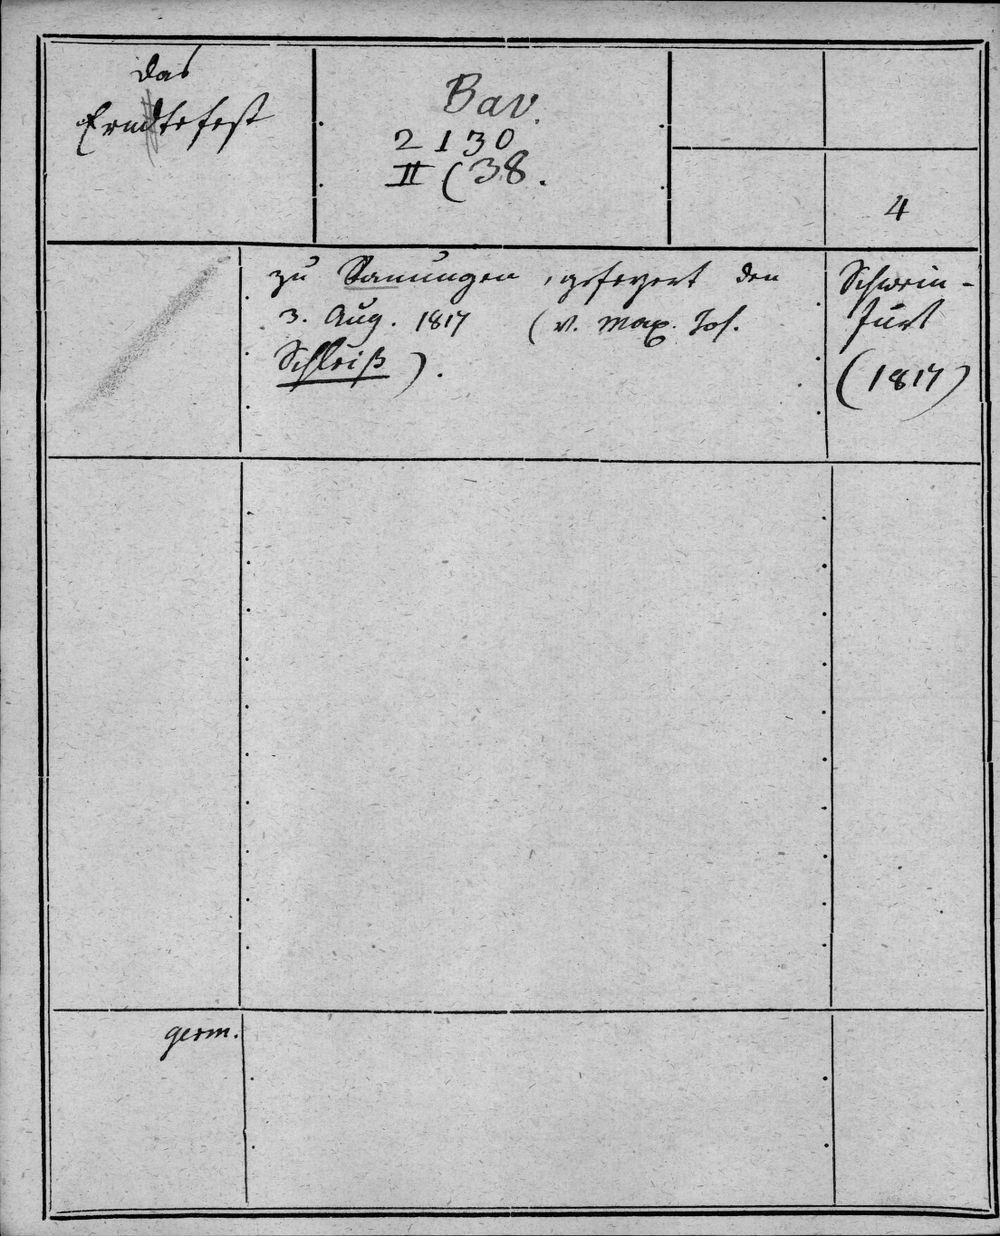 das
Erndtefest
Bav.
2130
II (38.
4
zu Rannungen, gefeyert den
3. Aug. 1817 (v. Max. Jos.
Schleiß).
Schwein-
furt
(1817)
germ.